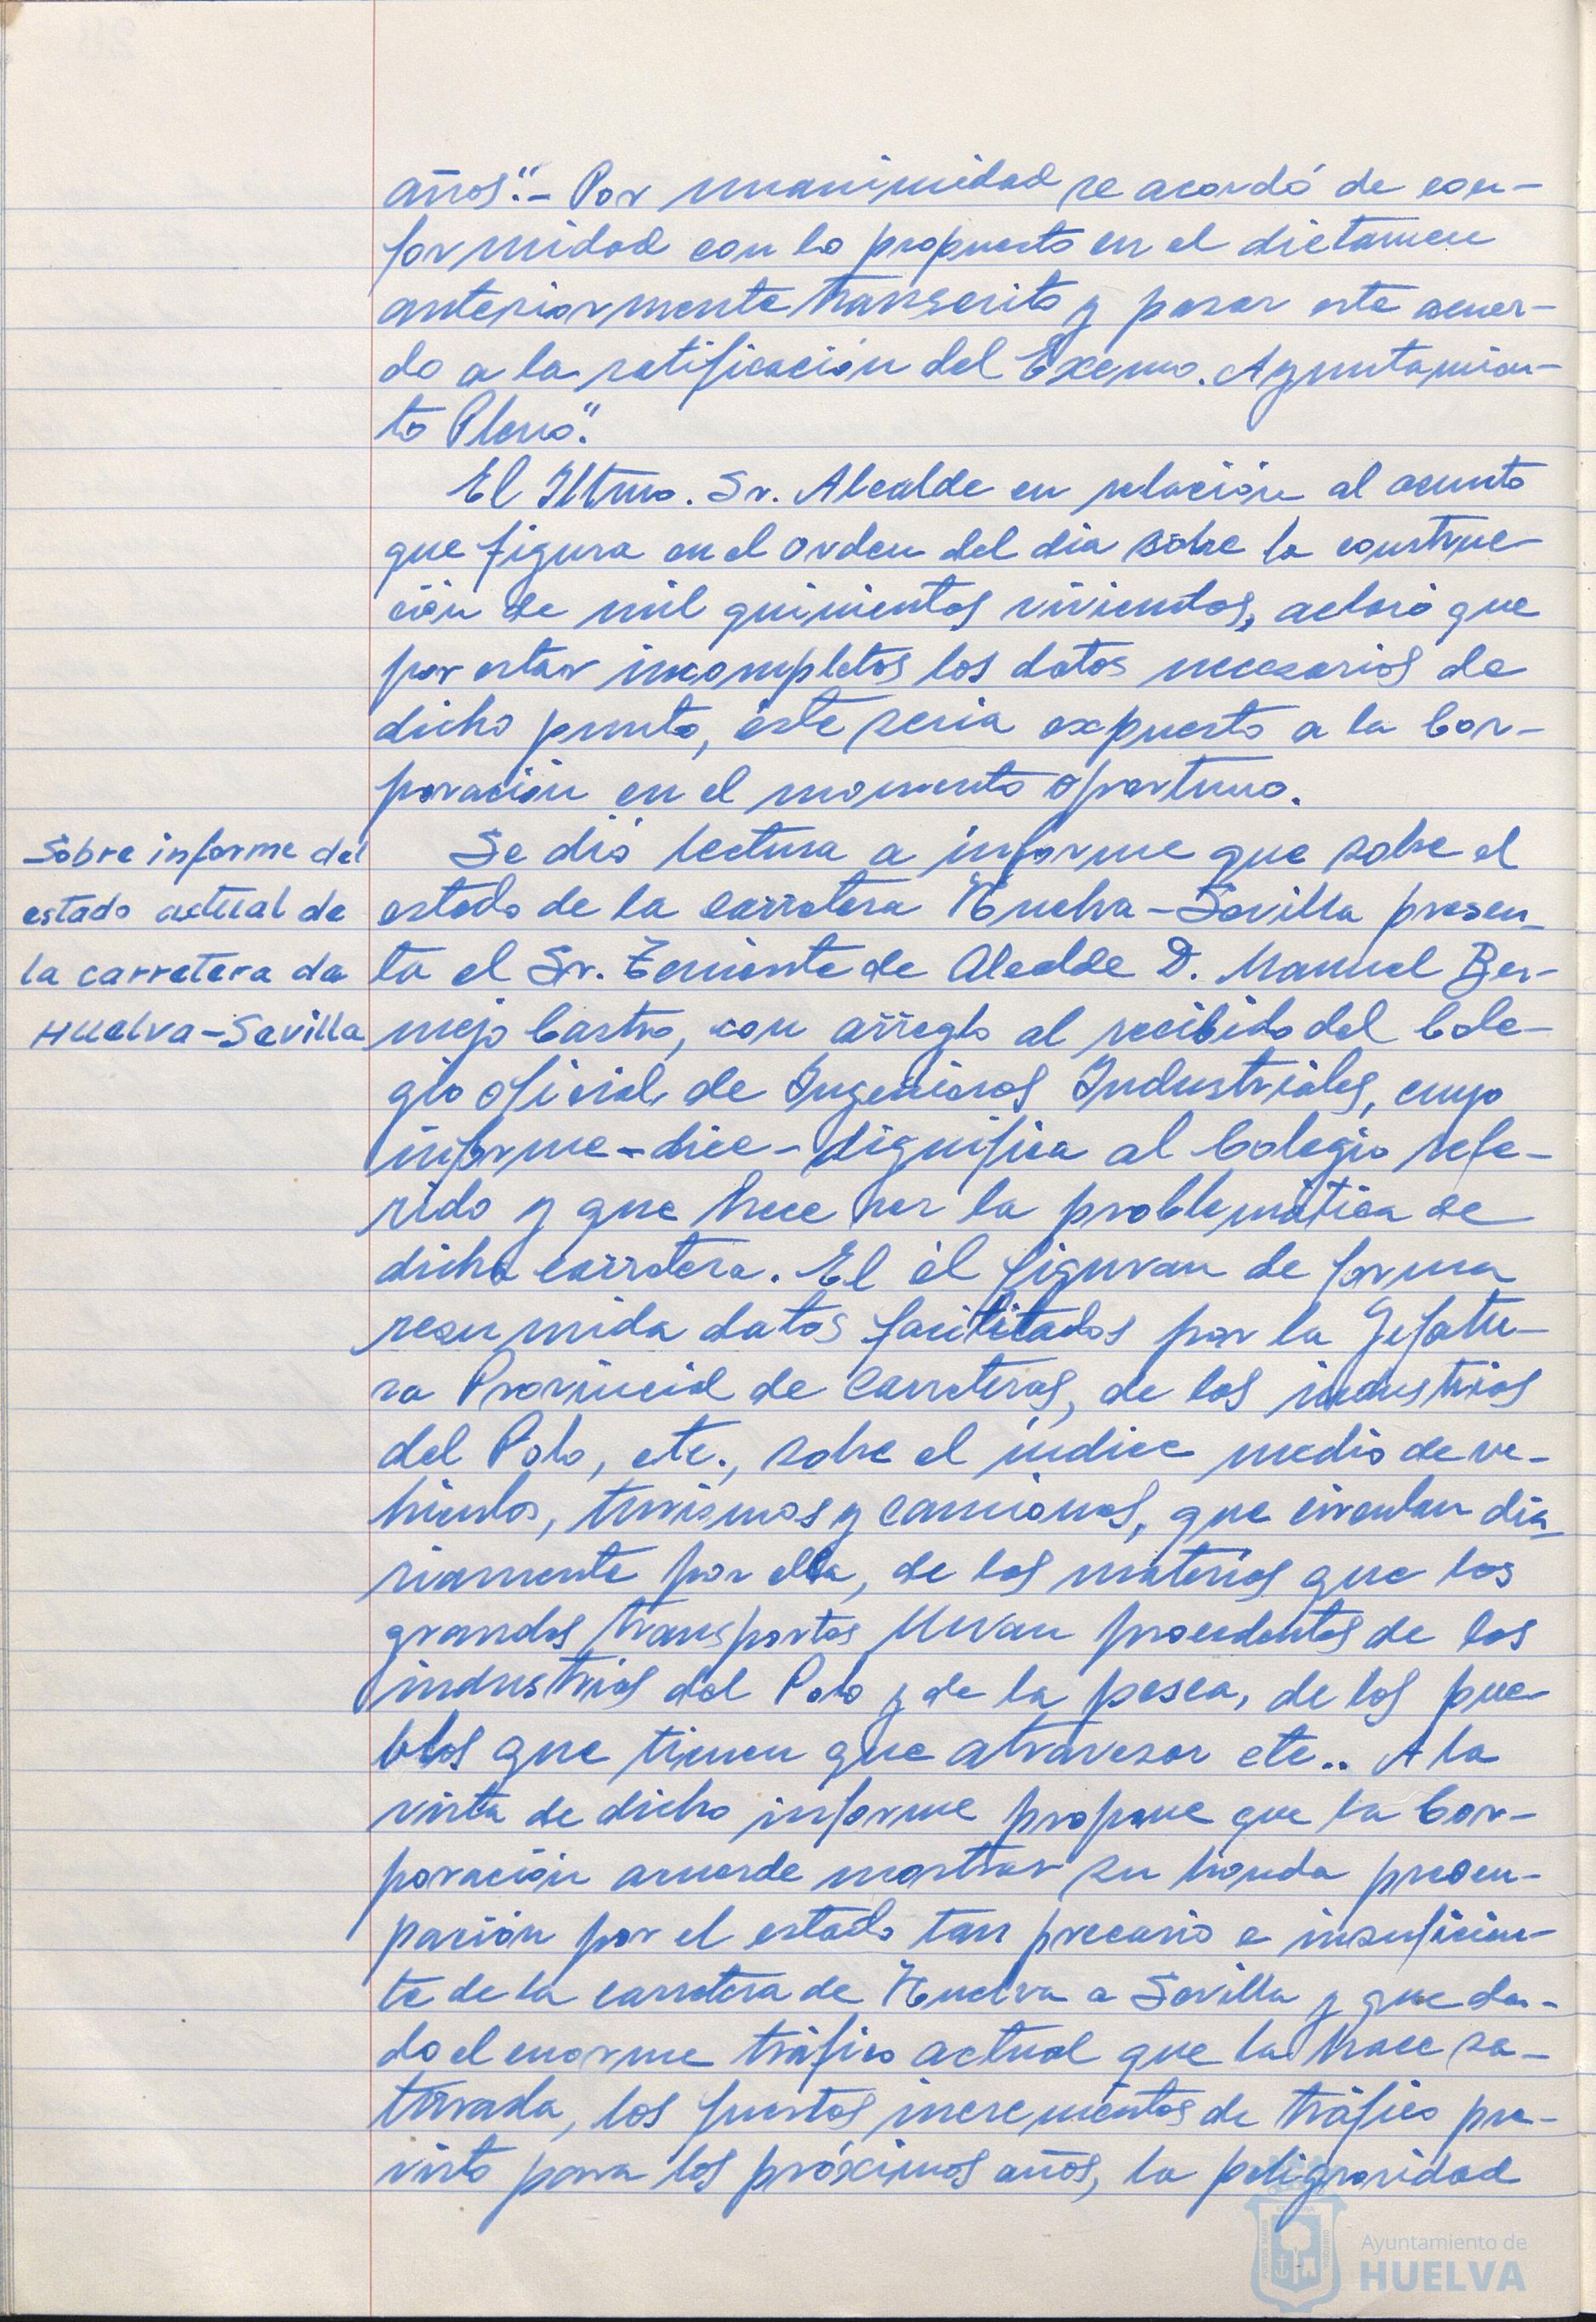 años".- Por unanimidad se acordó de con-
formidad con lo propuesto en el dictamen
anteriormente transcrito y pasar este acuer-
do a la ratificación del Excmo. Ayuntamien-
to Pleno".
El Iltmo. Sr. Alcalde en relación al asunto
que figura en el orden del dia sobre la construc-
ción de mil quinientas viviendas, aclaró que
por estar incompletos los datos necesarios de
dicho punto, éste seria expuesto a la Cor-
poración en el momento oportuno.
Sobre informe del
estado actual de
la carretera de
Huelva-Sevilla
Se dió lectura a informe que sobre el
estado de la carretera Huelva-Sevilla presen-
ta el Sr. Teniente de Alcalde D. Manuel Ber-
mejo Castro, con arreglo al recibido del Cole-
gio oficial de Ingenieros Industriales, cuyo
informe-dice-dignifica al Colegio refe-
rido y que hace ver la problemática de
dicha carretera. El él figuran de forma
resumida datos facilitados por la Jefatu-
ra Provincial de Carreteras, de las industrias
del Polo, etc., sobre el índice medio de ve-
hiculos, turismos y camiones, que circulan dia-
riamente por ella, de las materias que los
grandes transportes llevan procedentes de las
industrias del Polo y de la pesca, de los pue-
blos que tienen que atravesar etc.. A la
vista de dicho informe propone que la Cor-
poración acuerde mostrar su honda preocu-
pación por el estado tan precario e insuficien-
te de la carretera de Huelva a Sevilla y que da-
do el enorme tráfico actual que la hace sa-
turada, los fuertes incrementos de tráfico pre-
visto para los próximos años, la peligrosidad
Ayuntamiento de
HUELVA